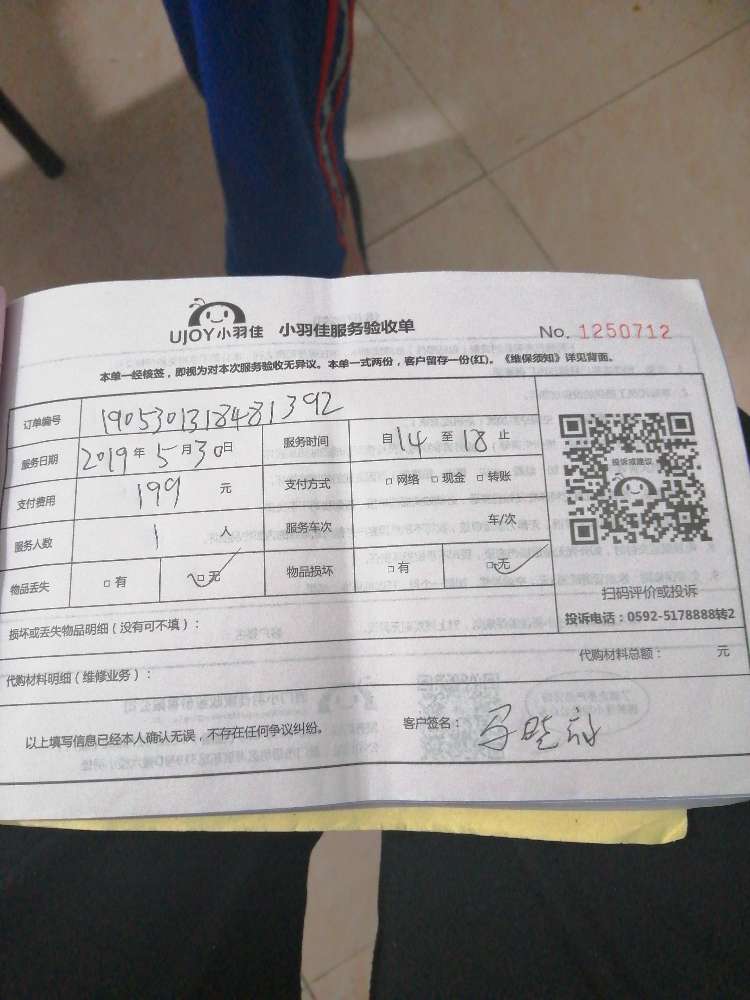 UJOY小羽佳 小羽佳服务验收单 No. 1250712
本单一经核签,即视为对本次服务验收无异议。本单一式两份,客户留存一份(红)。《维保须知》详见背面。
订单编号 1905301318481392
服务日期 2019年5月30日 服务时间 自14至18止
支付费用 199 元 支付方式 □网络 □现金 □转账
服务人数 1 人 服务车次 车/次
物品丢失 □有 □无 物品损坏 □有 □无
投诉或建议
扫码评价或投诉
投诉电话:0592-5178888转2
损坏或丢失物品明细(没有可不填):
代购材料明细(维修业务): 代购材料总额: 元
以上填写信息已经本人确认无误,不存在任何争议纠纷。 客户签名: